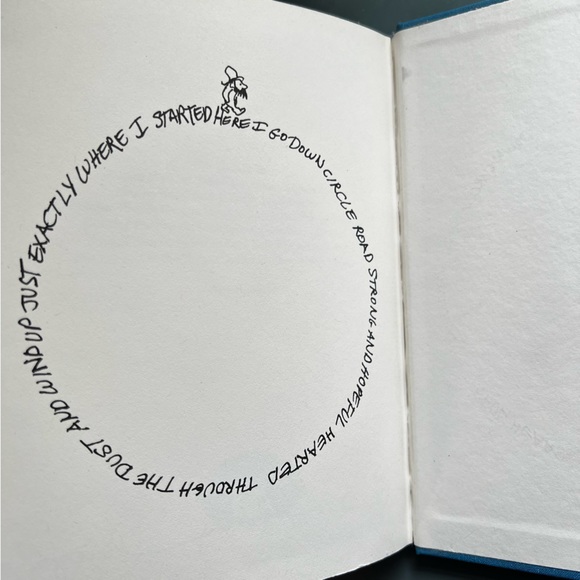 HERE I GO DOWN CIRCLE ROAD STRONG AND HOPEFUL HEARTED THROUGH THE DUST AND WIND UP JUST EXACTLY WHERE I STARTED